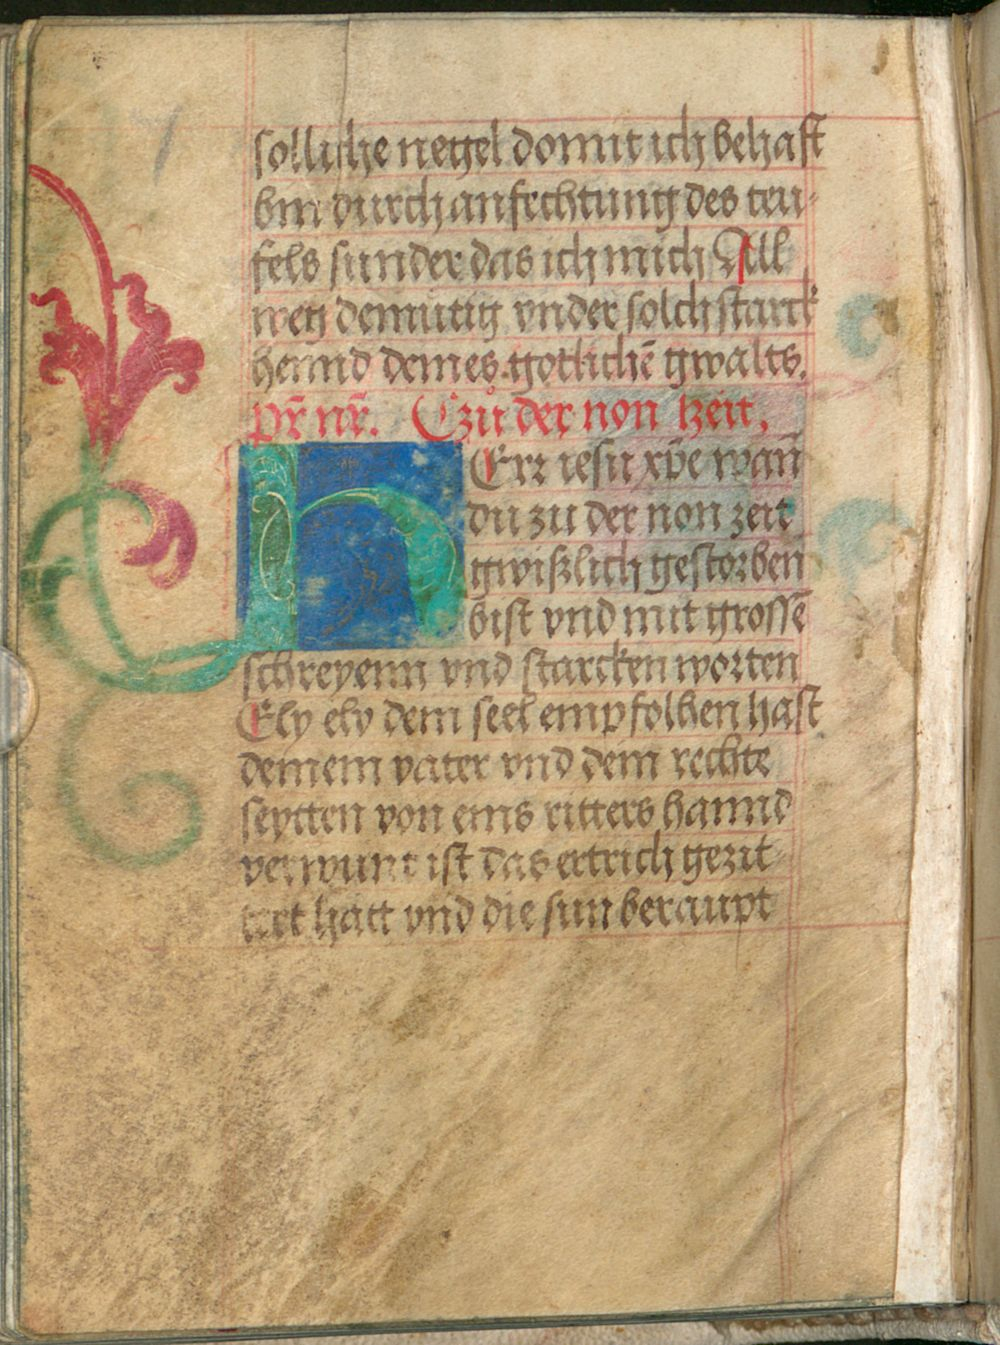 solliche negel domit ich behaft
bin durch anfechtung des teu-
fels sunder das ich mich All
weg demutig vnder solch starck
hennd deines gotlichē gwalts.
pr̄ nr̄. Czů der non tzeit.
hErr iesu xp̄e wan̄
du zu der non zeit
gwißlich gestorben
bist vnd mit grossē
schreyenn vnd starcken worten
Ely ely dein seel empfolhen hast
deinem vater vnd dein rechte
seytten von eins ritters hannd
verwunt ist das ertrich gezit-
tert hatt vnd die sun beraupt